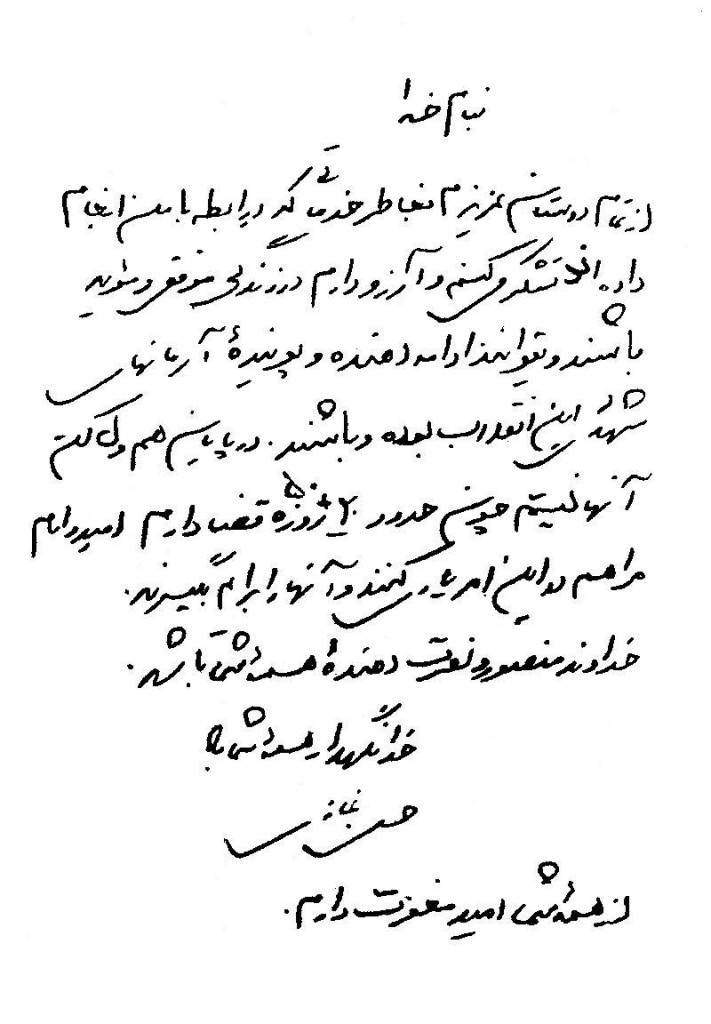 بنام خدا
از تمام دوستان عزیزم بخاطر خدماتی که در رابطه با من انجام
داده‌اند تشکر می‌کنم و آرزو دارم در زندگی موفق و مؤید
باشند و بتوانند ادامه دهنده و پویندهٔ آرمانهای
شهدای این انقلاب بوده و باشند. در پایان هم
آنها نیستم چون حدود روزه قضا دارم امیدوارم
مرا هم در این امر یاری کنند و آنها را برایم بگیرند.
خداوند منصور و نصرت دهندهٔ همهٔ شما باشد.
خدا نگهدار همهٔ شما
حسن نمازی
از همهٔ شما امید مغفرت دارم.